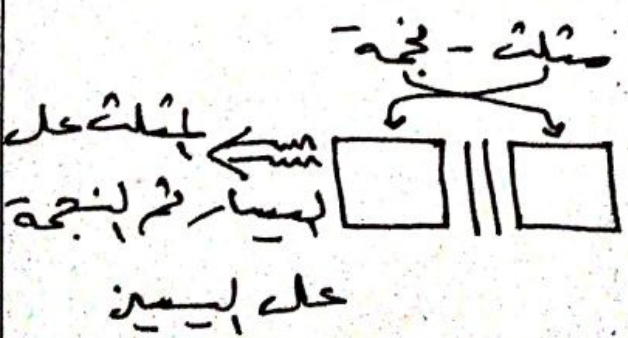 مثلث - نجمة
المثلث على
اليسار ثم النجمة
على اليمين